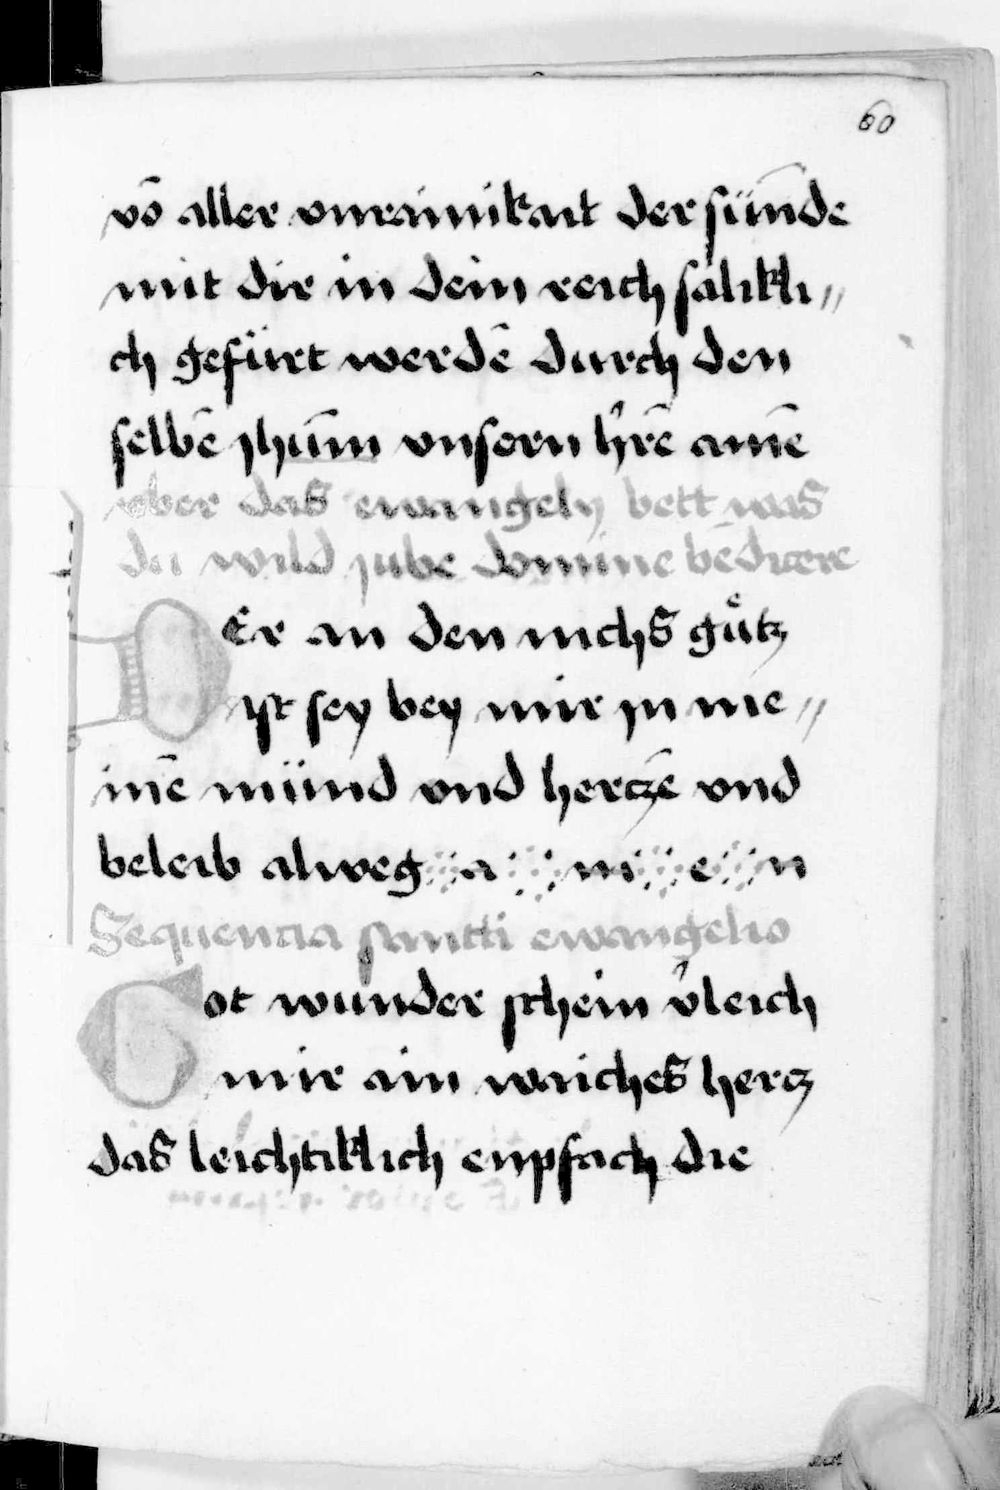 60
vō aller vnrainikait der sün̄de
mit dir in dein reich sälikli〃
ch gefürt werdē durch den
selbē jhūm vnsern hrē̄ amē
vber das ewangely bett was
du wild jube domine bēdicere
DEr an den nichs gůtz
ist sey bey mir jn me〃
inē münd vnd herczē vnd
beleib alweg a m e n
Sequencia sancti ewangelio
Got wunder schein v̓leich
mir ain waiches hercz
das leichtiklich enpfach die